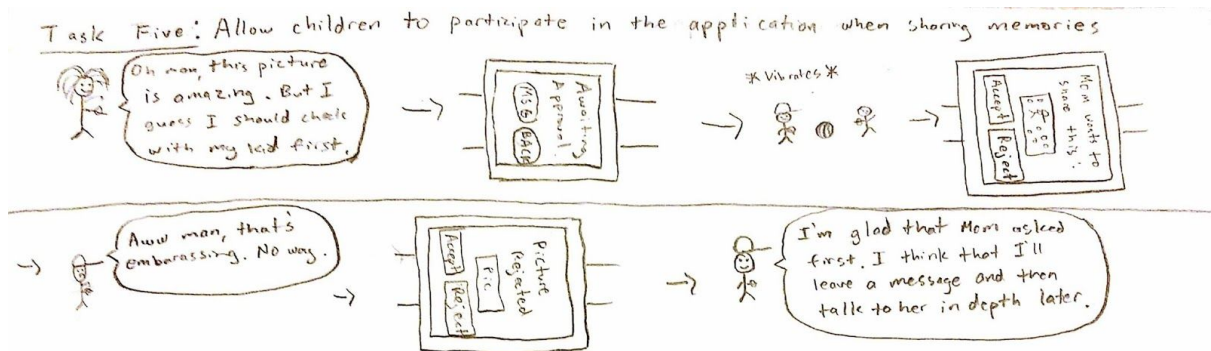 Task Five: Allow children to participate in the application when sharing memories
Oh man, this picture
is amazing. But I
guess I should check
with my kid first.
Awaiting
Approval!
MSG BACK
*Vibrates*
Mom wants to
share this:
Accept Reject
Aww man, that's
embarassing. No way.
Picture
Rejected
Pic
Accept Reject
I'm glad that Mom asked
first. I think that I'll
leave a message and then
talk to her in depth later.